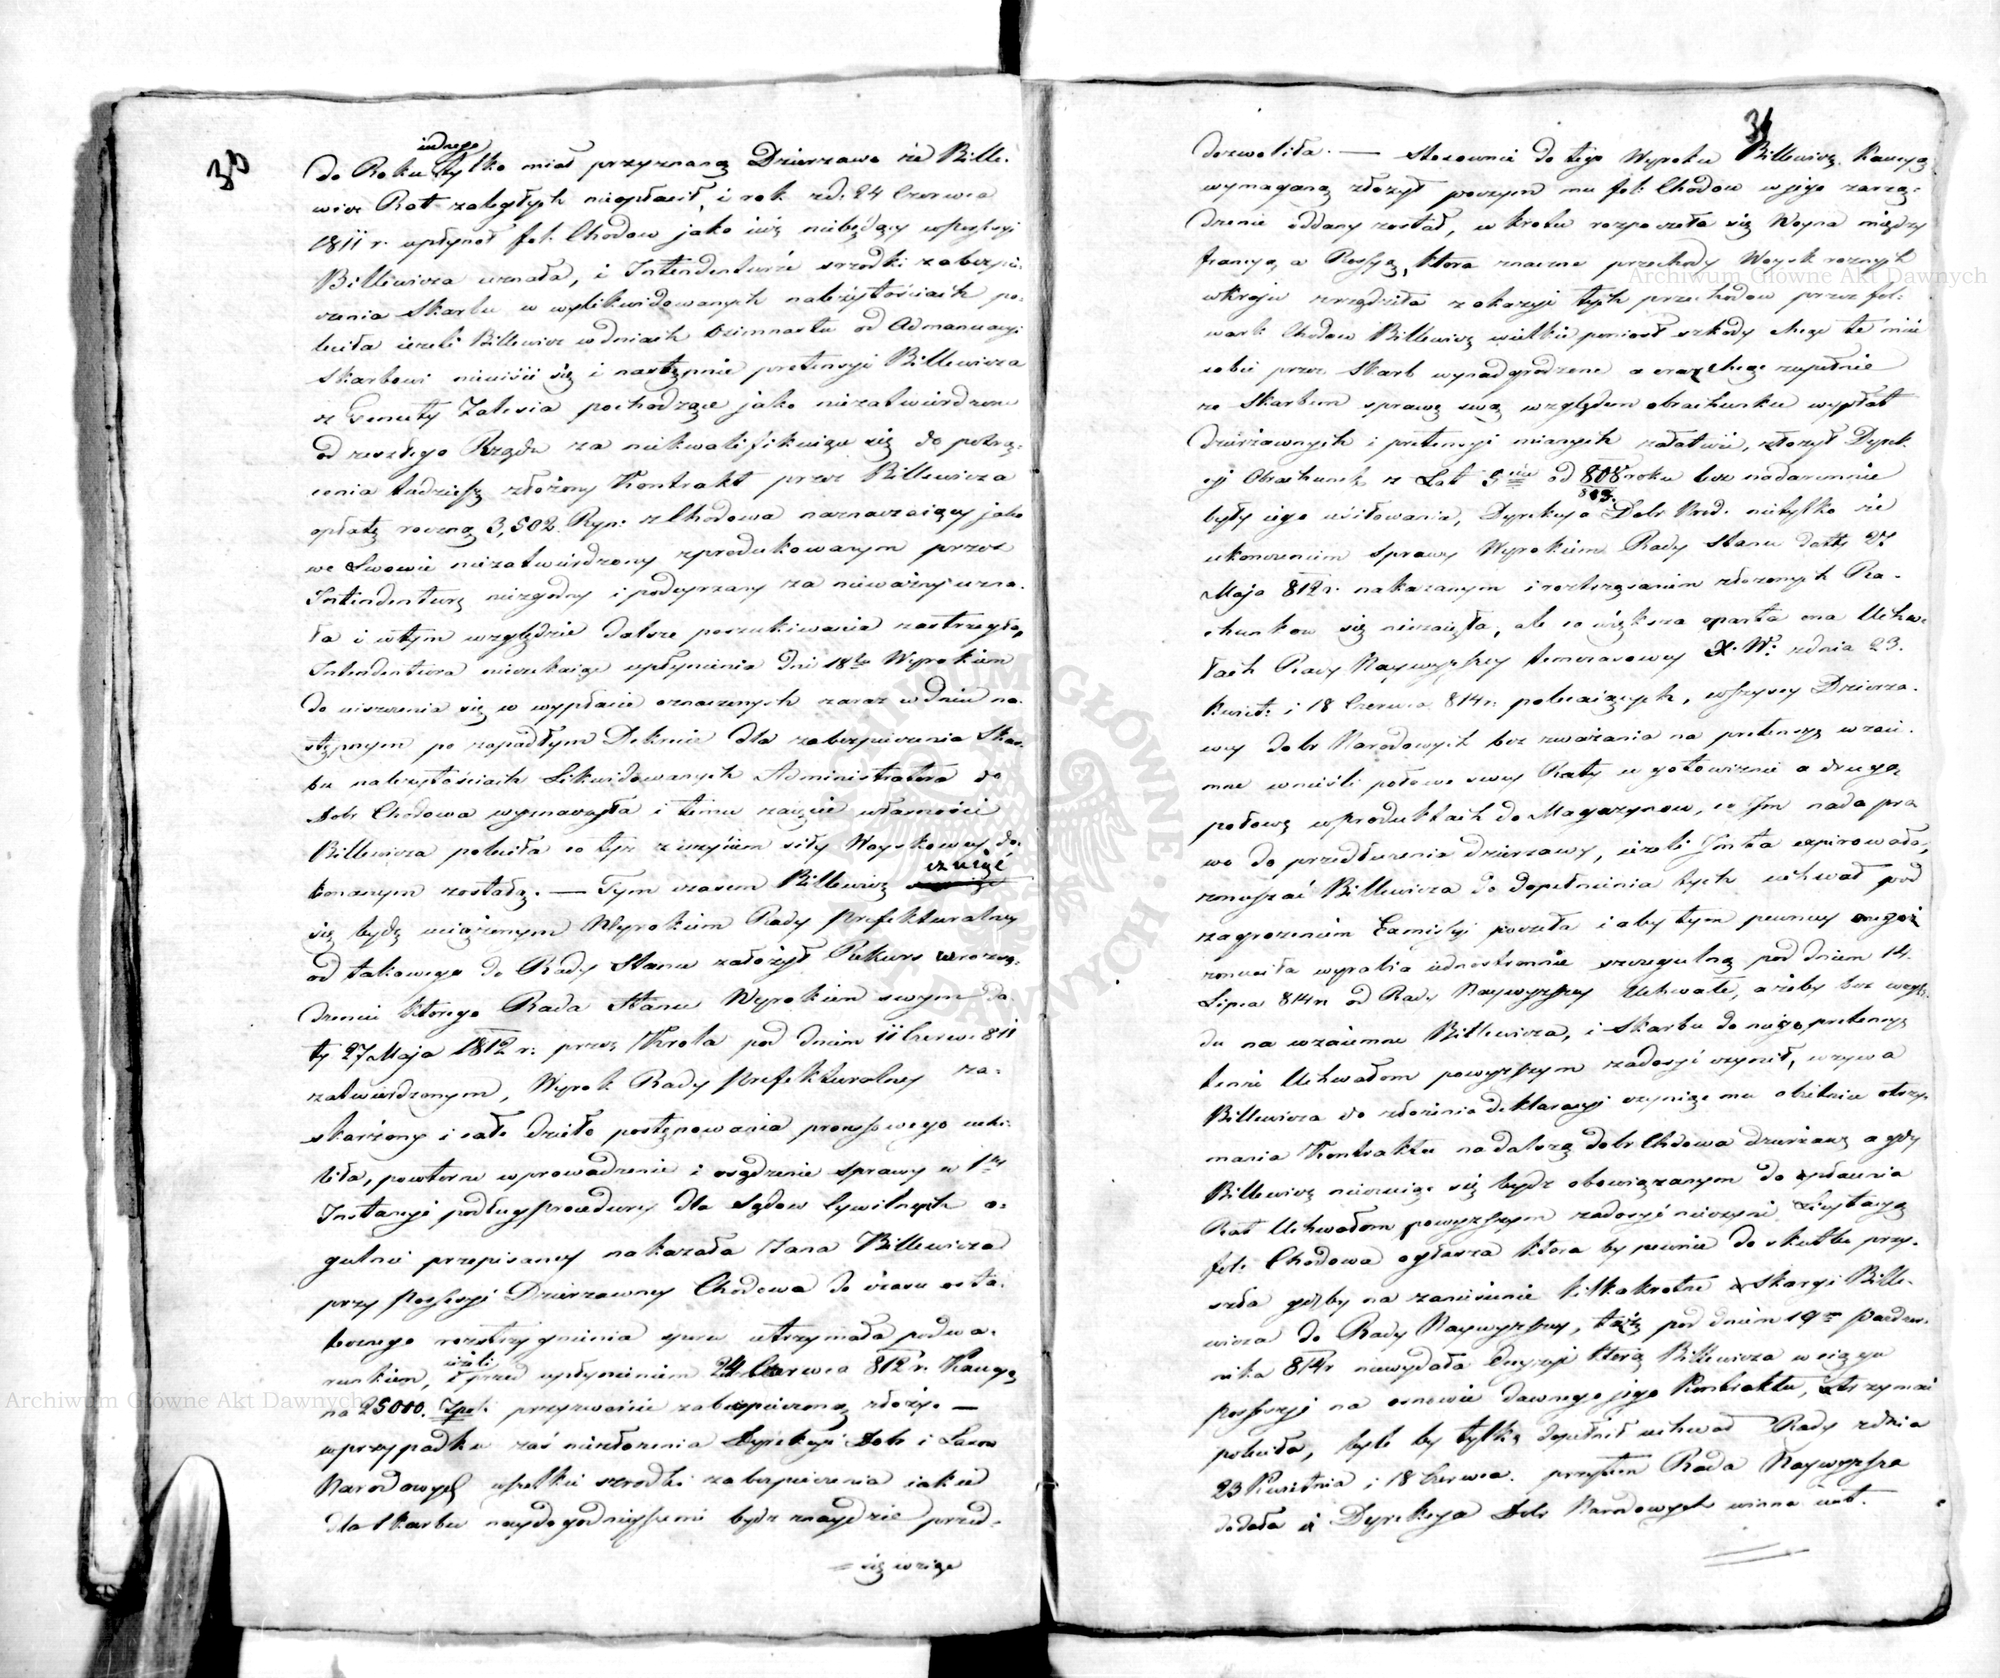 30
iednego
do Roku tylko miał przyznaną Dzierzawę że Bille-
wicz Rat zaległych nieopłacił, i rok zd. 24 Czerwca
1811 r. upłynoł fol. Chodow jako iuż niebędący w Possessyi
Billewicza uznała, i Intendenturze srzodki zabezpie-
czenia Skarbu w wylikwidowanych należytościach po-
leciła ieżeli Billewicz w dniach Osimnastu od Admanuacyi
Skarbowi nieuiści się i następnie pretensyi Billewicza
z Gemuty Zalesia pochodzące jako niezatwierdzone
od zeszłego Rządu za niekwalifikuiące się do potrą-
cenia tudzież złożony Kontrakt przez Billewicza
opłatę roczną 3,502 Ryn: z Chodowa naznaczaiący jako
we Lwowie niezatwierdzony z produkowanym przez
Intendenturę niezgodny i podeyrzany za nieważny uzna-
ła i w tym względzie dalsze poszukiwania zastrzegła,
Intendentura nieczekaiąc upłynienia dni 18tu Wyrokiem
do uiszczenia się w wypłacie oznaczonych zaraz w dniu na-
stępnym po zapadłym Dekrecie dla zabezpieczenia Skar-
bu należytościach Likwidowanych Administratora do
Dobr Chodowa wyznaczyła i temu zaięcie własności
Billewicza poleciła co też z użyciem siły Woyskowey do-
konanym zostało. — Tym czasem Billewicz
czuiąc
się bydź uciążonym Wyrokiem Rady Prefekturalney
od takowego do Rady Stanu założył Rekurs w rozsą-
dzeniu ktorego Rada Stanu Wyrokiem swym da-
ty 27 Maja 1812 r: przez Krola pod dniem 11 Czerw. 811
zatwierdzonym, Wyrok Rady Prefekturalney za-
skarżony i całe dzieło postępowania processowego uchy-
liła, powtorne wprowadzenie i osądzenie sprawy w 1szey
Instancyi podług procedury dla Sądow Cywilnych o-
gulnie przepisaney nakazała Jana Billewicza
przy Possessyi Dzierzawney Chodowa do czasu osta-
tecznego rozstrzygnienia sporu utrzymała pod wa-
ieżeli
runkiem, i przed upłynieniem 24 Czerwca 812 r. Kaucyą
na 25000. Zpol: przyzwoicie zabezpieczoną złoży. —
w przypadku zaś niezłożenia Dyrekcyi Dobr i Lasow
Narodowych wszelkie szrodki zabezpieczenia iakie
dla skarbu naydogodnieyszemi bydź znaydzie przed-
= się wziąć
31
dozwoliła. — Stosownie do tego Wyroku Billewicz Kaucyą
wymaganą złożył poczym mu fol: Chodow w jego zarzą-
dzenie oddany został, w krotce rozpoczeła się Woyna między
Francyą a Rossyą, ktora znaczne przechody Woysk roznych
w kraju zrządziła z okazyi tych przechodow przez fol-
wark Chodow Billewicz wielkie poniosł szkody chcąc te mieć
sobie przez Skarb wynadgrodzone a oraz chcąc zupełnie
ze Skarbem sprawę swą względem obrachunku wypłat
dzierżawnych i pretensyi mianych załatwić, złożył Dyrek-
cyi Obrachunek z Lat 5ciu od 808 roku
813.
lecz nadaremnie
były iego usiłowania, Dyrekcya Dobr Nrod. nietylko że
ukonczeniem sprawy Wyrokiem Rady Stanu datt: 27
Maja 812 r. nakazanym i roztrząsaniem złożonych Ra-
chunkow się niezaięła, ale co większa oparta ona Uchwa-
łach Rady Naywyższey tymczasowey X. W: z dnia 23.
Kwiet: i 18 Czerwca 814 r. polecaiących, wszyscy Dzierza-
wcy dobr Narodowych bez zważania na pretensye wzaie-
mne wnieśli połowę swey Raty w gotowiznie a drugą
połowę w produktach do Magazynow, co Im nada pra-
wo do przedłużenia dzierżawy, ieżeli Im ta expirowała,
zmuszać Billewicza do dopełnienia tych uchwał pod
zagrożeniem Eamissyi poczeła i aby tym pewniey onegoż
zmusiła wyrabia iednostronnie szczegulną pod dniem 14.
Lipca 814 r. od Rady Naywyższey Uchwałę, ażeby bez wzglę-
du na wzaiemne Billewicza, i Skarbu do niego pretensye
tenże Uchwałom powyższym zadosyć uczynił, wzywa
Billewicza do złożenia deklaracyi czyniąc mu obietnice otrzy-
mania Kontraktu na dalszą dobr Chodowa dzierżawę a gdy
Billewicz nieczuiąc się bydź obowiązanym do opłacenia
Rat Uchwałom powyższym zadosyć nieczyni Licytacyą
fol: Chodowa ogłasza ktora by pewnie do skutku przy-
szła gdyby na zaniesienie kilkakrotne skargi Bille-
wicza do Rady Naywyższey, taż pod dniem 19m Pazdzier-
nika 814 r niewydała decyzyi którą Billewicza w ciągu
possessyi na osnowie dawnego jego Kontraktu, utrzymać
poleciła, byle by tylko dopełnił uchwał Rady z dnia
23 Kwietnia i 18 Czerwca. przytem Rada Naywyższa
dodała iż Dyrekcya Dobr Narodowych winna iest.